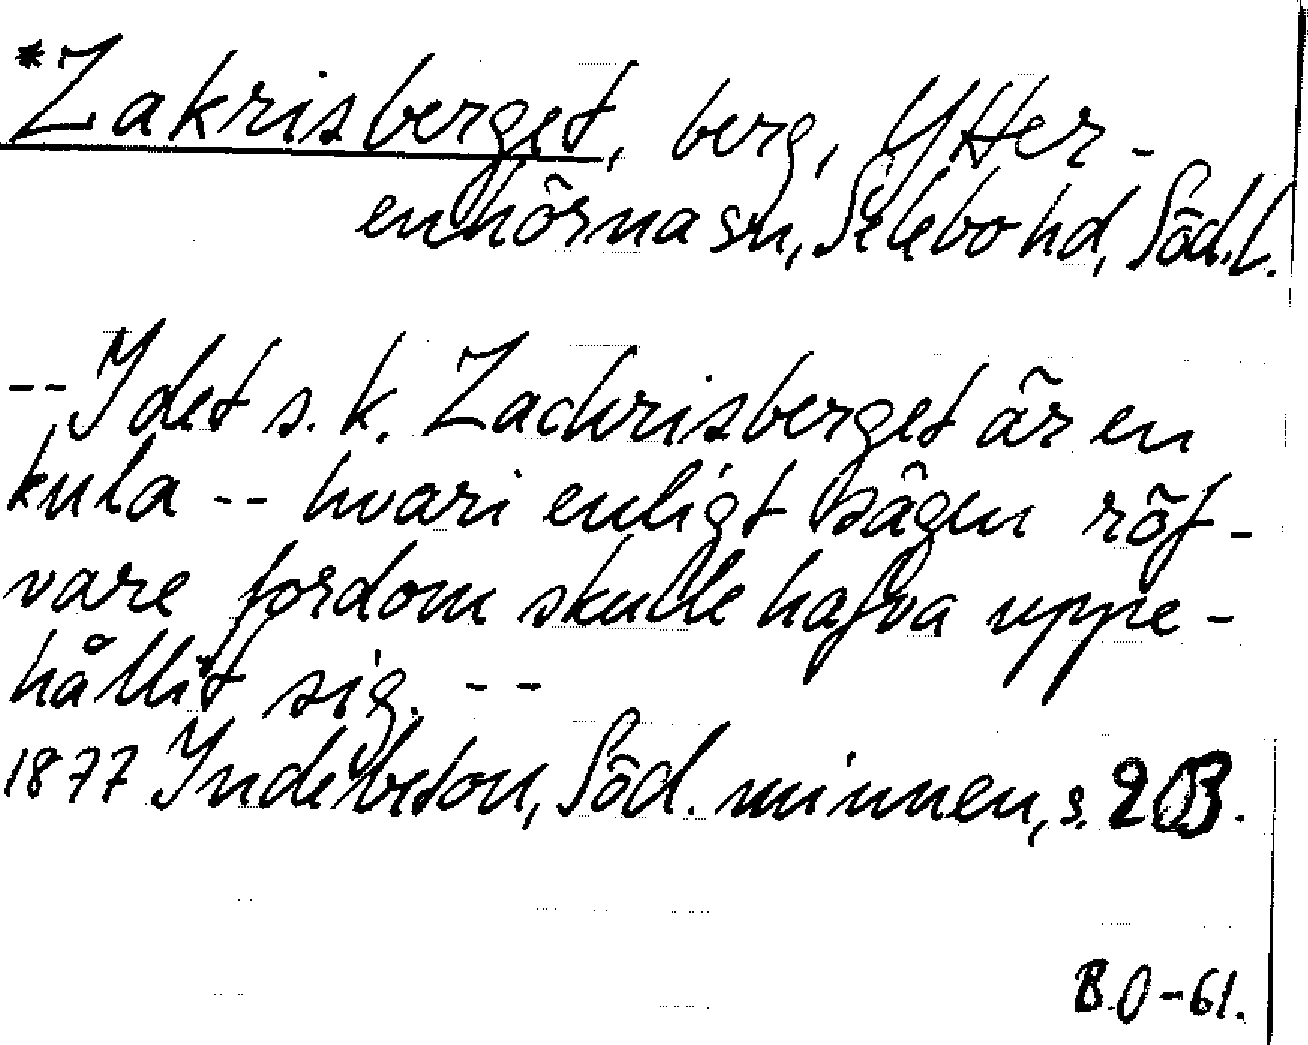 *Zakrisberget, berg, Ytter-
enhörna sn, Selebo hd, Söd.l.
-- I det s.k. Zachrisberget är en
kula -- hvari enligt sägen röf-
vare fordom skulle hafva uppe-
hållit sig. --
1877 Indebetou, Söd. minnen, s. 203.
B.O-61.